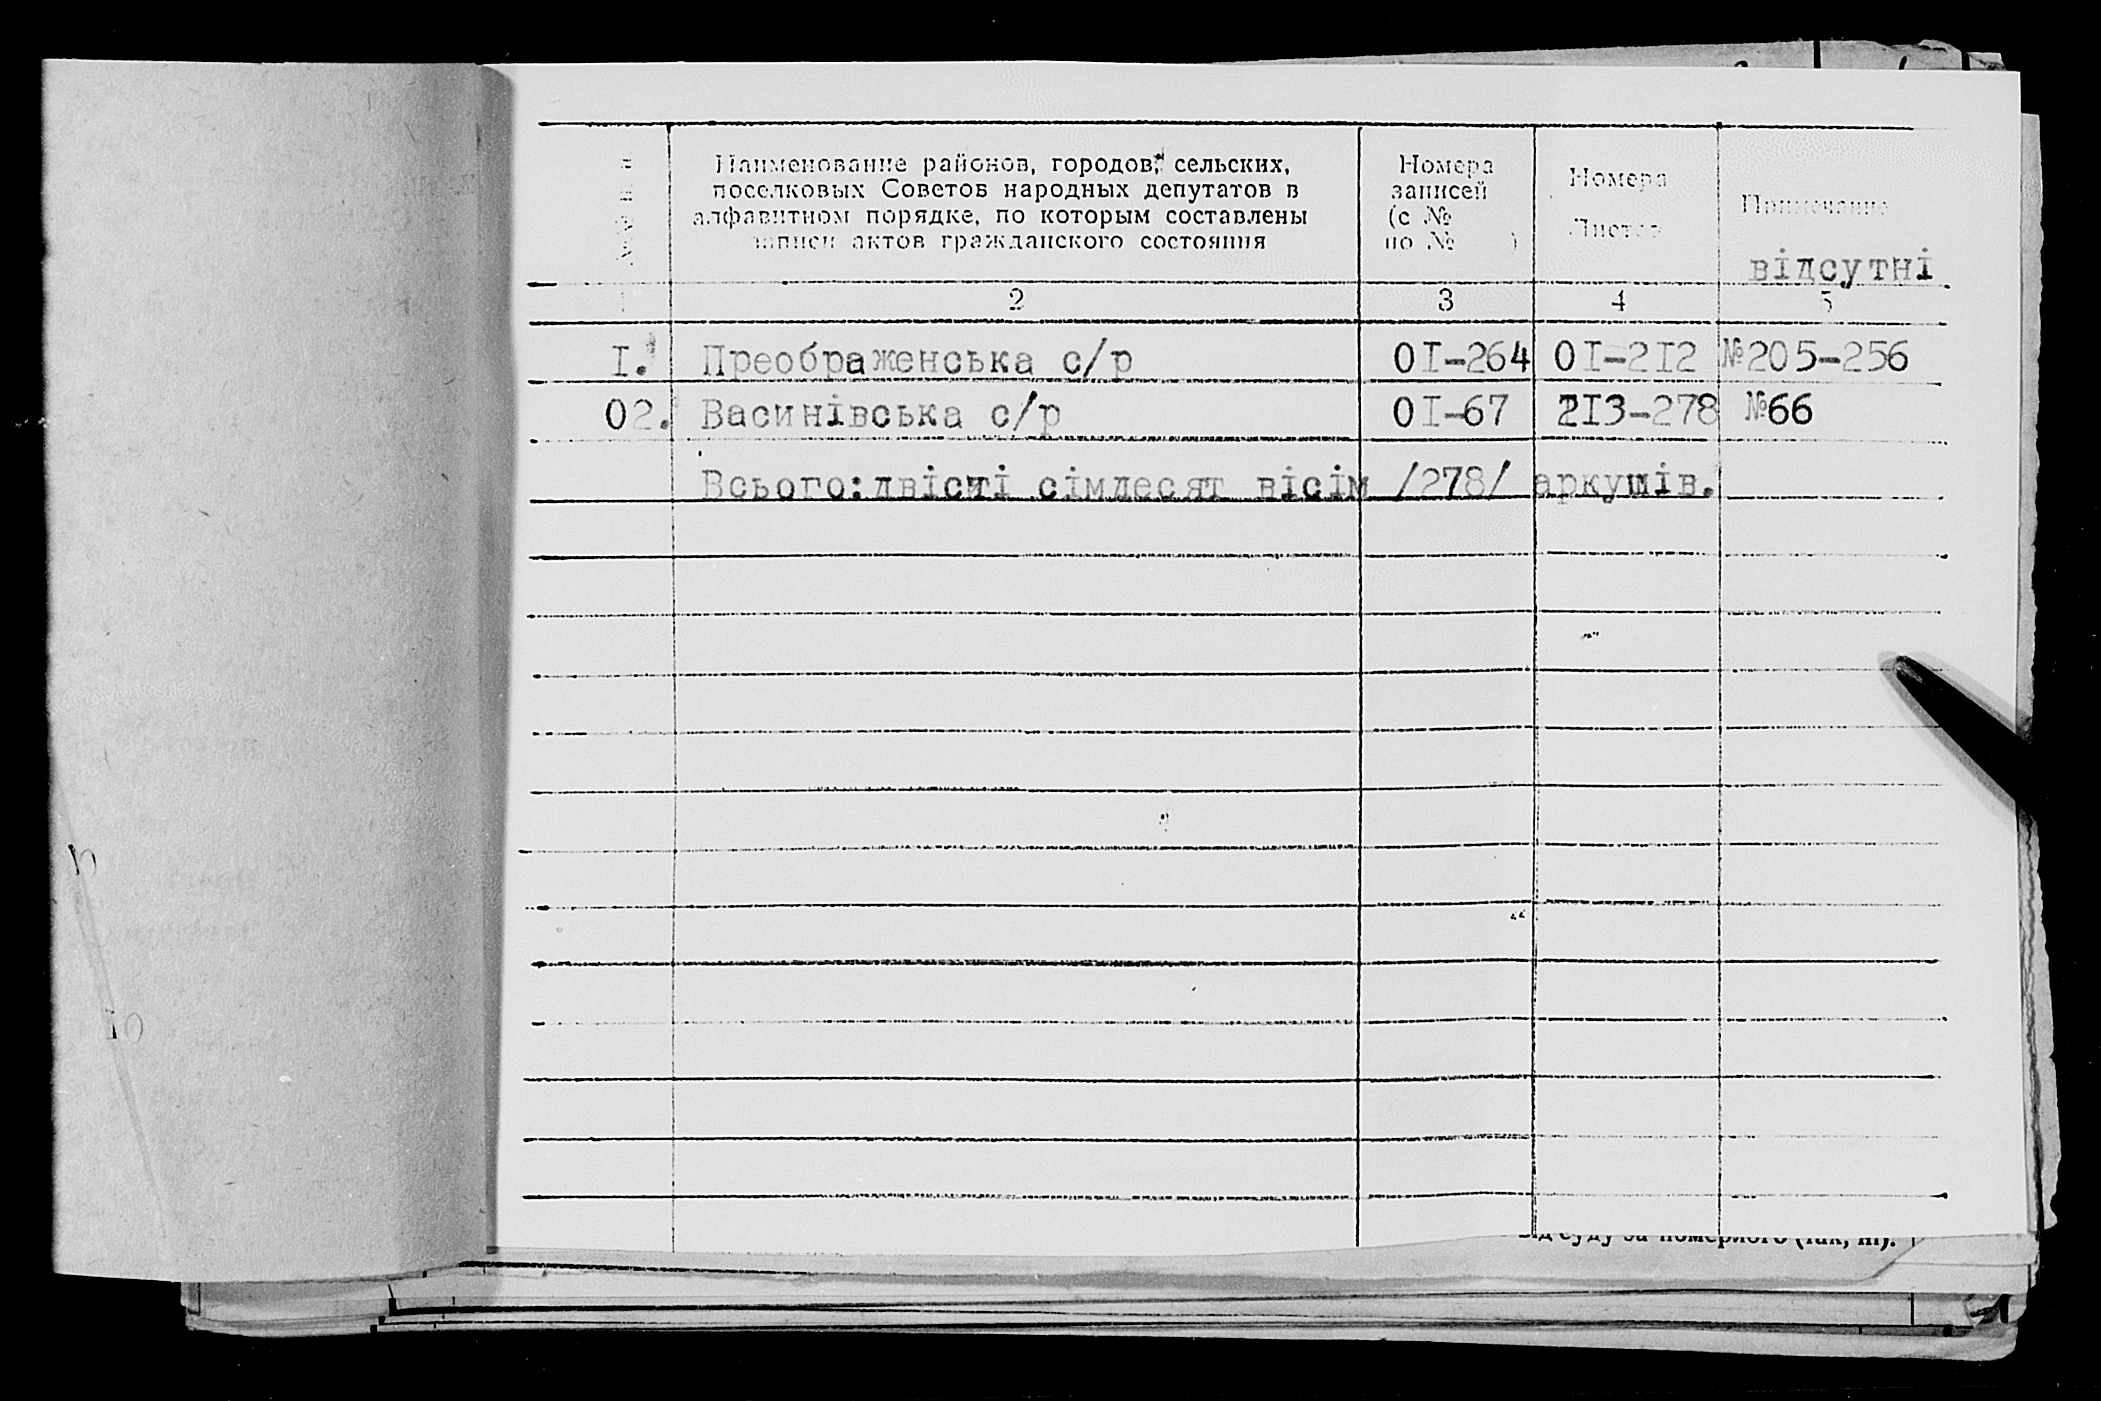 Наименование районов, городов, сельских,
поселковых Советов народных депутатов в
алфавитном порядке, по которым составлены
записи актов гражданского состояния
Номера
записей
(с №
по № )
Номера
Листов
Примечание
відсутні
2 3 4 5
I. Преображенська с/р 0I-264 0I-2I2 №205-256
02. Васинівська с/р 0I-67 2I3-278 №66
Всього:двісті сімдесят вісім /278/ аркушів.
від суду за померлого (так, ні).